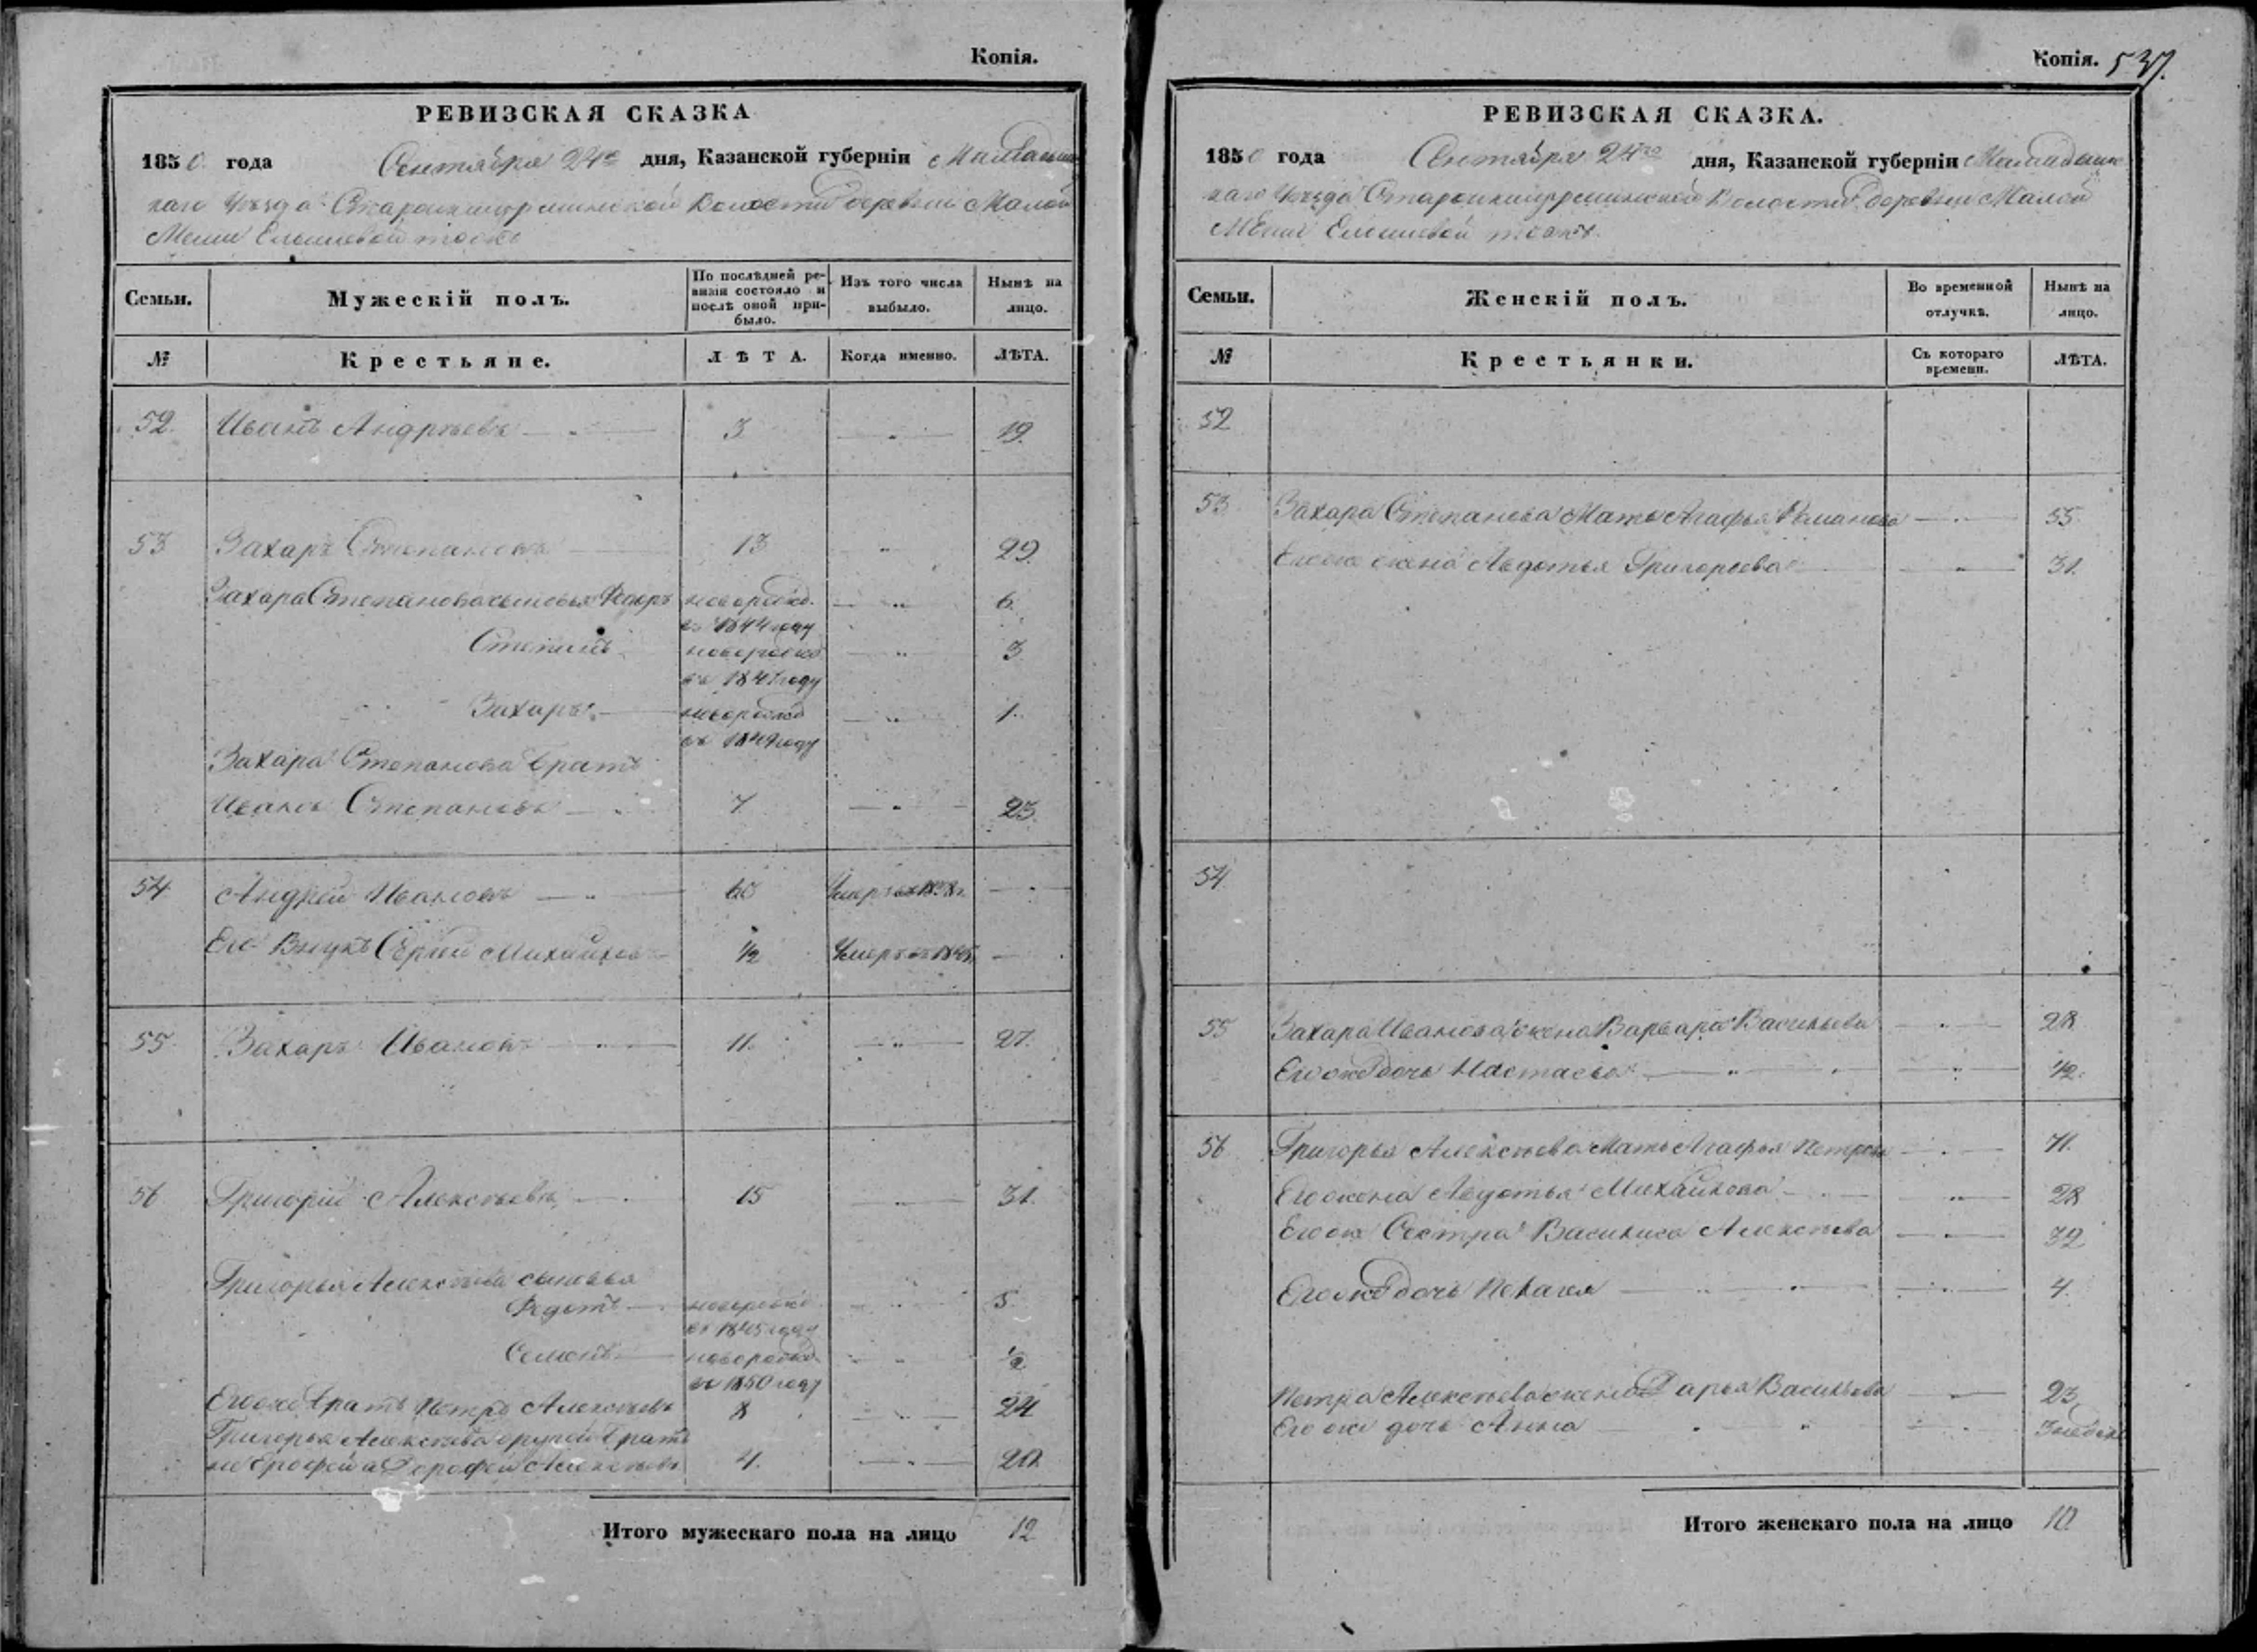 Копія.
РЕВИЗСКАЯ СКАЗКА
1850 года Сентября 24го дня, Казанской губерніи Мамадыш
скаго уѣзда Волости деревни Малой
Меши Елышевой тожъ
Семьи. Мужескій полъ. По послѣдней ревизіи состояло и послѣ оной прибыло. Изъ того числа выбыло. Нынѣ на лицо.
№ Крестьяне. ЛѢТА. Когда именно. ЛѢТА.
52. Иванъ Андреевъ — 3 — 19.
53 Захаръ Степановъ 13 — 29.
Захара Степанова сыновья Федоръ новорожд. — 6.
въ 1844 году
Степанъ новорожд — 3
въ 1847 году
Захаръ — новорожд — 1.
въ 1849 году
Захара Степанова братъ
Иванъ Степановъ — 7 — 23.
54 Андрей Иванов — 63 Умеръ въ —
Его Внукъ Сергей Михайлов 1/2 Умеръ въ —
55. Захаръ Ивановъ — 11. — 27.
56 Григорій Алексѣевъ — 15 — 31.
Григорья Алексѣева сыновья
Федотъ — новорожд — 5
въ 1845 году
Семенъ — новорожд — 1/2
въ 1850 году
Егоже братъ Петръ Алексѣевъ 8 — 24
Григорья Алексѣева другой братъ
не Ерофей а Дорофей Алексѣевъ 4. — 20.
Итого мужескаго пола на лицо 12
Копія. 537.
РЕВИЗСКАЯ СКАЗКА.
1850 года Сентября 24го дня, Казанской губерніи Мамадыш
скаго уѣзда Волости деревни Малой
Меши Елышевой тожъ.
Семьи. Женскій полъ. Во временной отлучкѣ. Нынѣ на лицо.
№ Крестьянки. Съ котораго времени. ЛѢТА.
52
53 Захара Степанова Мать Агафья Романова — 55
Егоже жена Авдотья Григорьева — 31.
54.
55 Захара Иванова жена Варвара Васильева — 28
Егоже дочь Настасья — 1/2.
56 Григорья Алексѣева Мать Агафья Петрова — 71.
Его жена Авдотья Михайлова — 28
Егоже Сестра Василиса Алексѣева — 32
Егоже дочь Пелагея — 4.
Петра Алексѣева жена Дарья Васильева — 23
Егоже дочь Анна — 3 недѣли
Итого женскаго пола на лицо 10.